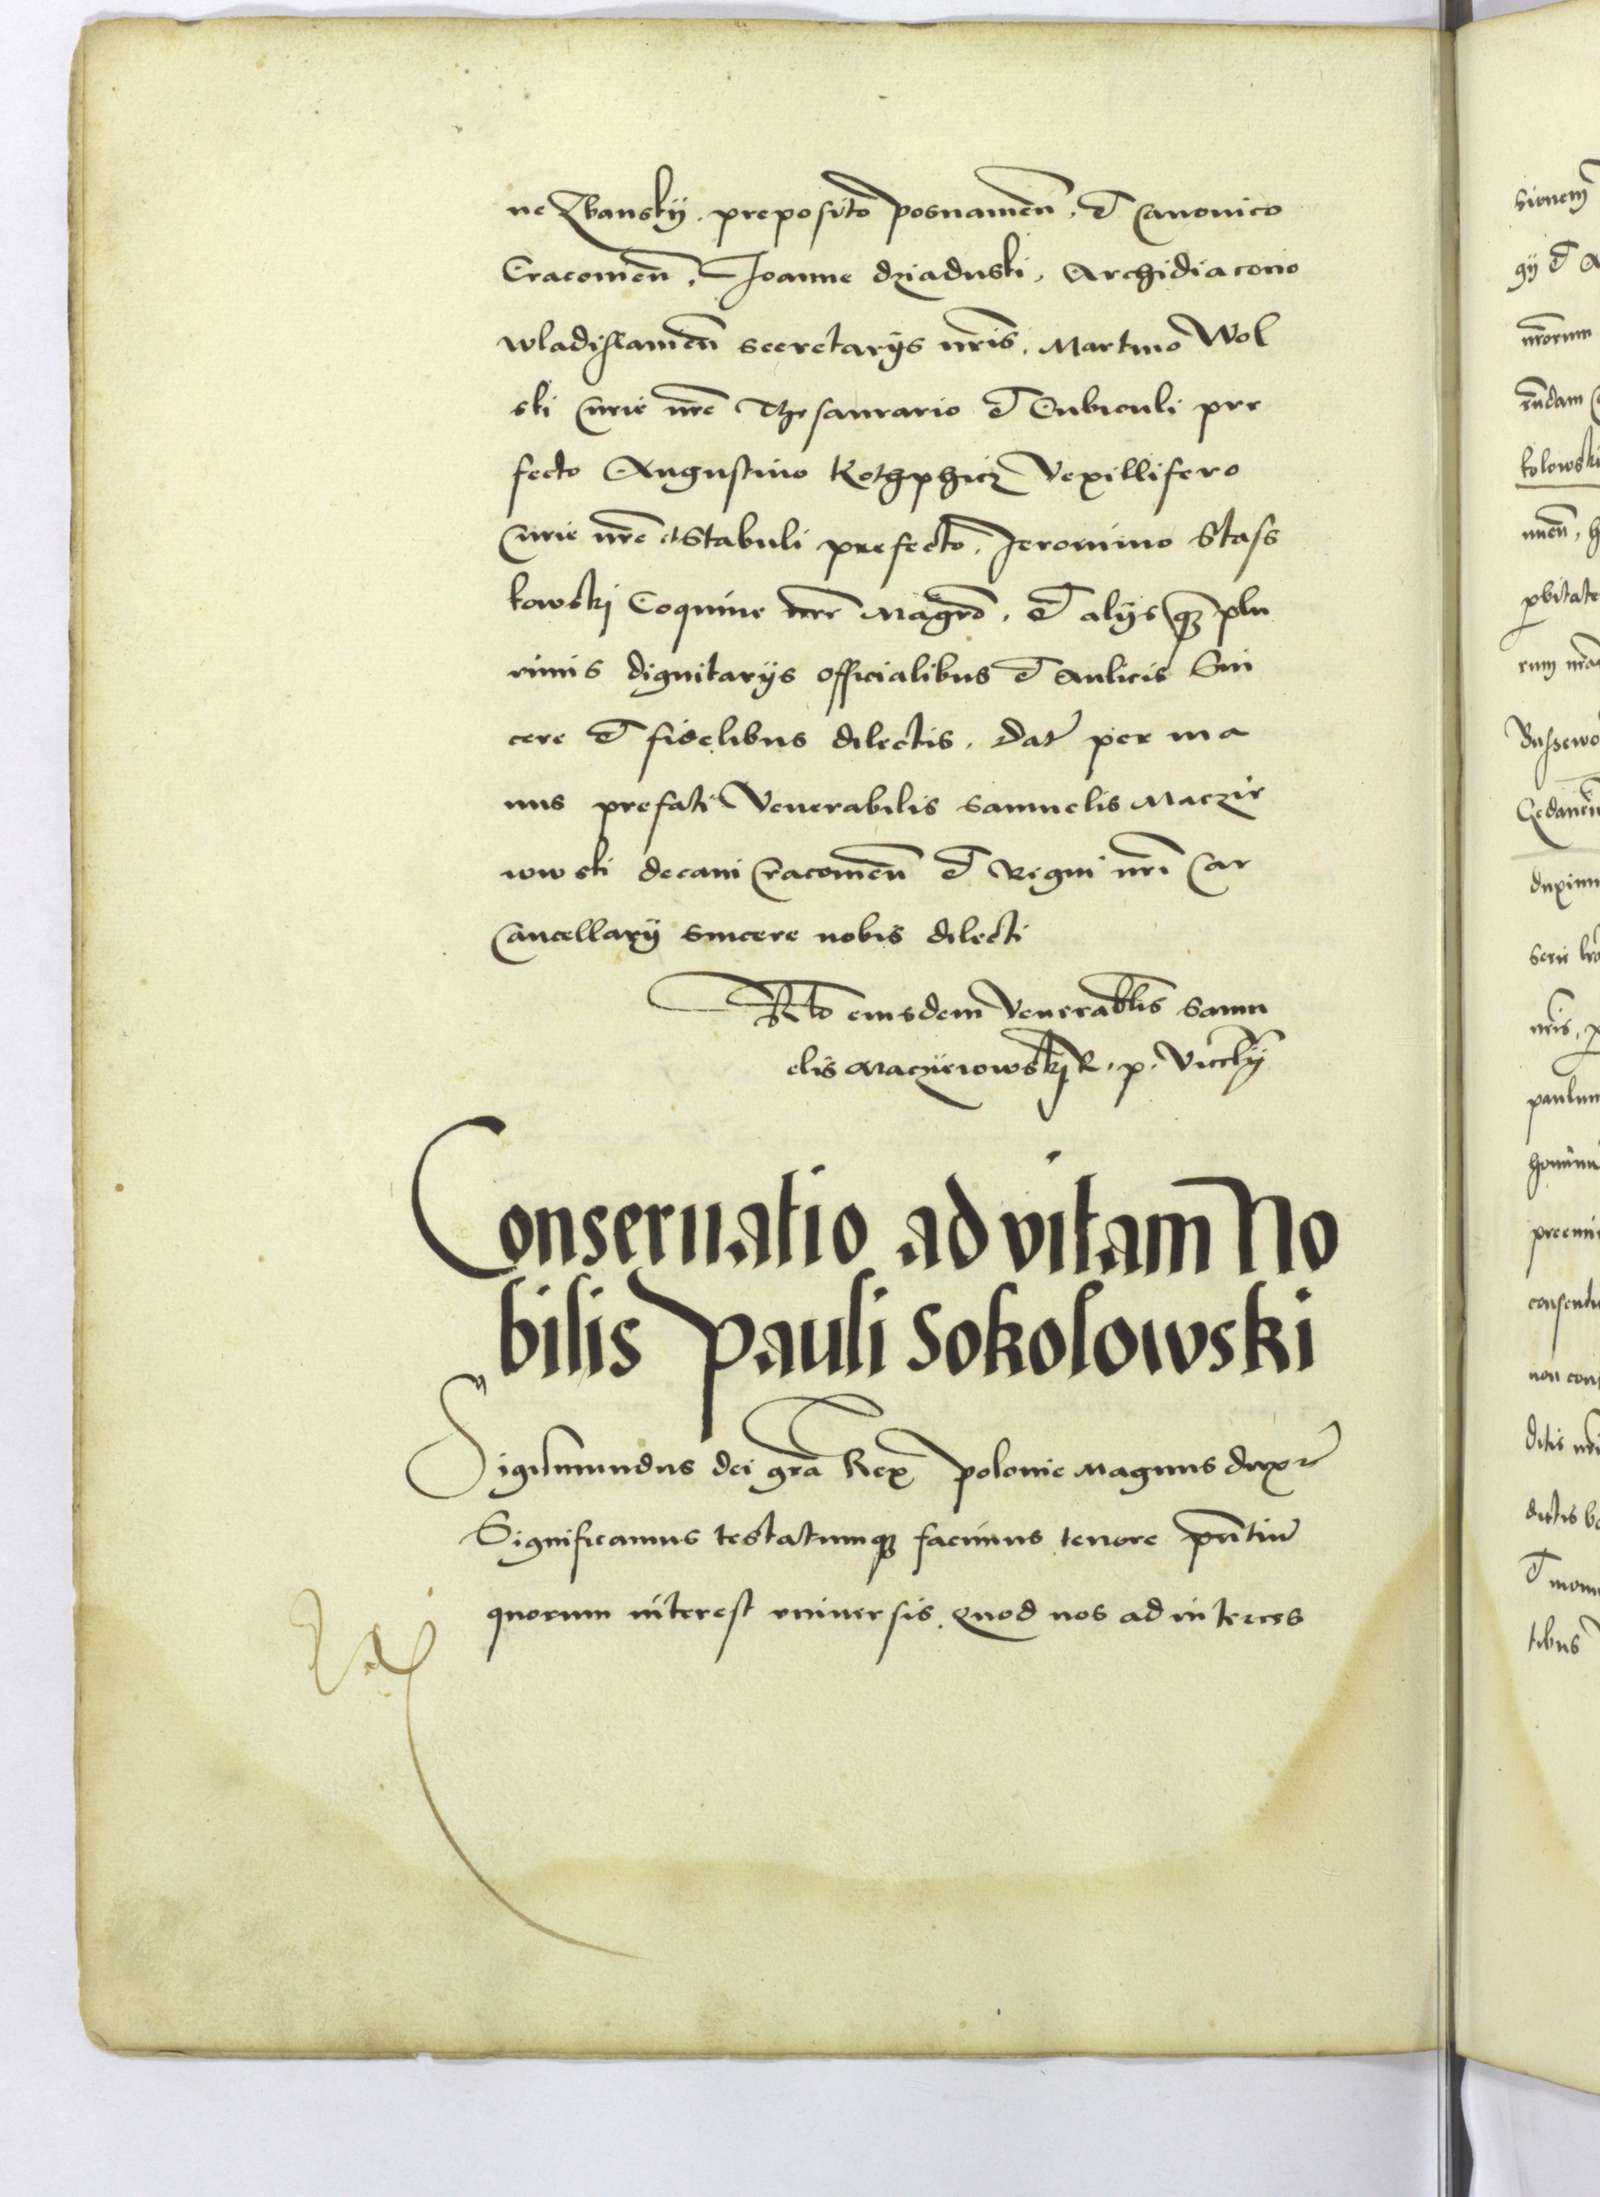 ne Zbansky . preposito posnamen̄ . et Canonico
Cracouien̄ . Joanne dziaduski . Archidiacono
wladislauien̄ secretarijs nr̄is . Martino Wol
ski Curie nr̄e Thesaurario et Cubiculi pre
fecto Augustino Kothphicz Vexillifero
Curie nr̄e et Stabuli prefecto . Jeronimo Stass
kowski Coquine nr̄e Magr̄o . et alijs q̄ȝ plu
rimis dignitarijs officialibus et aulicis Sin
cere et fidelibus dilectis . Dat̄ per ma
nus prefati Venerabilis Samuelis Maczie
iowski decani Cracouien̄ et Regni nr̄i Car
Cancellarij sincere nobis dilecti
Rl̄o eiusdem Venerabl̄is Samu
elis Maczieiowski R . p . Viccl̄ij
Conseruatio ad vitam No
bilis Pauli Sokolowski
Sigismundus dei gr̄a Rex Polonie Magnus dux
Significamus testatumqȝ facimus tenore pn̄tiū
quorum interest vniuersis . Quod nos ad interces
sionem
gij et
nr̄orum
kolowski
nuen̄ ,
rum
Gedanen̄
duximu
nr̄is ,
paulum
preemi
non con
tibus